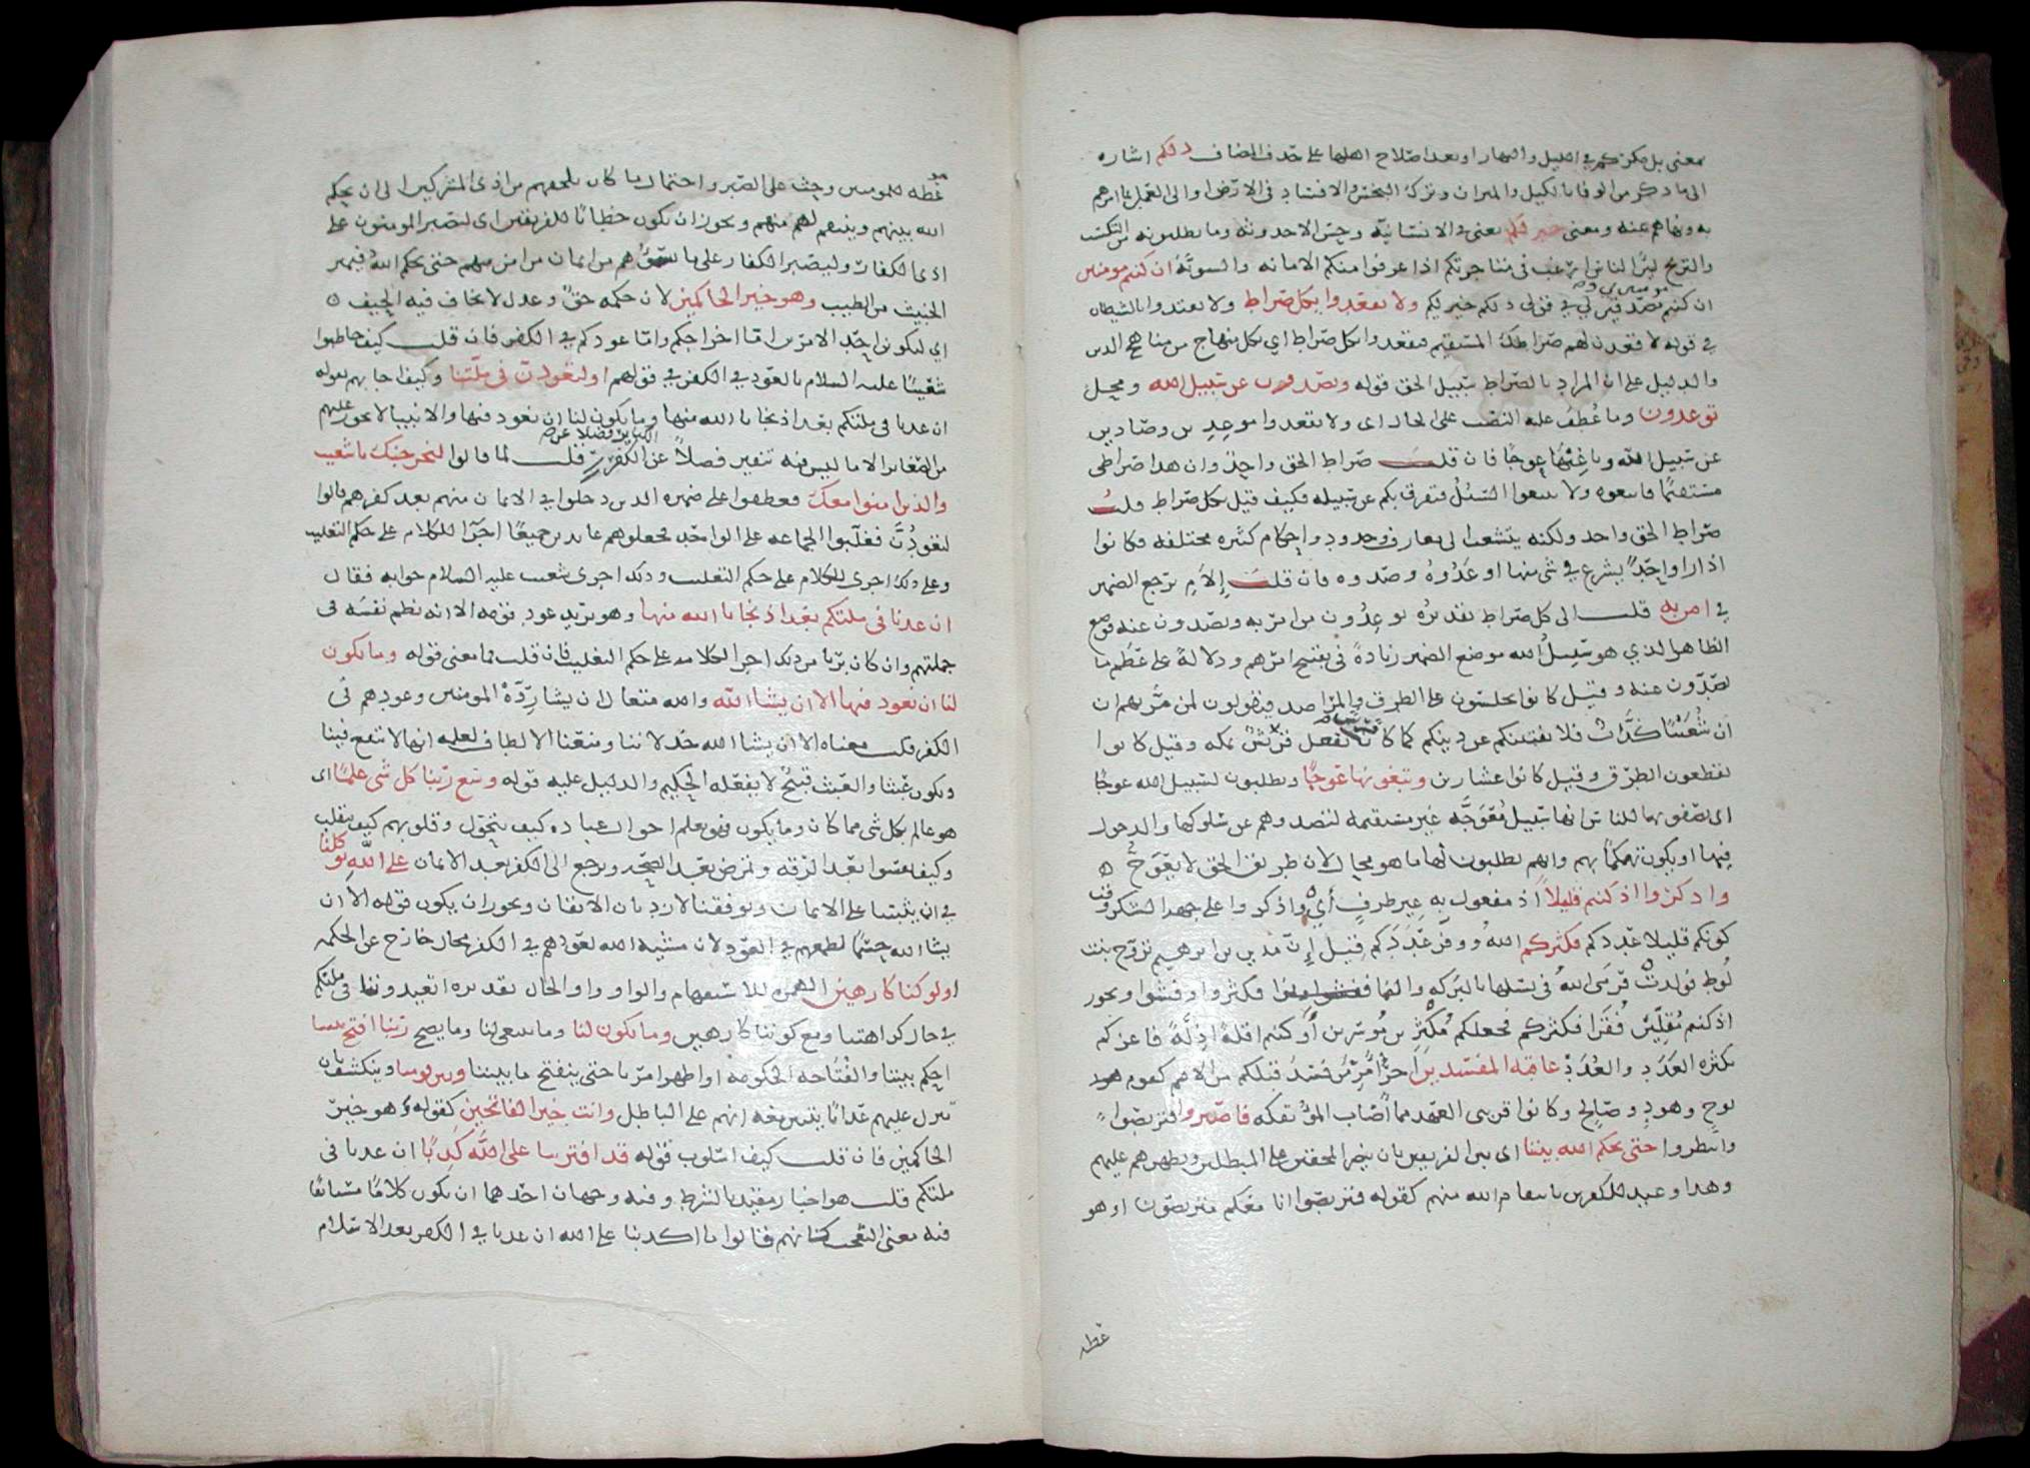 بمعنى بل مكركم في الليل والنهار او بعد اصلاح اهلها على حذف المضاف ذلكم اشاره
الى ما ذكر من الوفا بالكيل والميزان وترك البخس والافساد في الارض او الى العمل بما امرهم
به ونهاهم عنه ومعنى خير لكم يعنى في الانسانية وحسن الاحدوثه وما يطلبونه من التكسب
والتربح لان الناس ارغب في متاجرتكم اذا عرفوا منكم الامانه والسويّة ان كنتم مومنين
ان كنتم مصدقين لي في قولي ذلكم خير لكم ولا تقعدوا بكل صراط ولا تقتدوا بالشيطان
في قوله لاقعدن لهم صراطك المستقيم فتقعدوا بكل صراط اي بكل منهاج من مناهج الدين
والدليل على ان المراد بالصراط سبيل الحق قوله وتصدون عن سبيل الله ومحل
توعدون وما عُطِفَ عليه النصب على الحال اى ولا تقعدوا موعدين وصادين
عن سبيل الله وباغيها عوجًا فان قلت صراط الحق واحد وان هذا صراطى
مستقيمًا فاتبعوه ولا تتبعوا السُبُل فتفرق بكم عن سبيله فكيف قيل بكل صراط قلت
صراط الحق واحد ولكنه يتشعب الى معارف وحدود واحكام كثيره مختلفه فكانوا
اذا راوا احدًا يشرع في شى منها اوعَدُوهُ وصدوه فان قلت إِلَامَ ترجع الضمير
في امن به قلت الى كل صراط تقديره توعِدُون من امن به وتصدون عنه فوضع
الظاهر الذي هو سبيل الله موضع الضمير زيادةً في تقبيح امرهم ودلالةً على عِظَم ما
يصدّون عنه وقيل كانوا يجلسون على الطرق والمراصد فيقولون لمن مرّ بهم ان
ان شعيبًا كذّاب فلا يفتننكم عن دينكم كما كان تفعل قريش بمكه وقيل كانوا
يقطعون الطرق وقيل كانوا عشارين وتبغونها عوجًا وتطلبون لسبيل الله عوجًا
اى تصفونها للناس بانها سبيل مُعْوَجَّه غير مستقيمه لتصدوهم عن سلوكها والدخول
فيها او يكون تهكمًا بهم وانهم يطلبون لها ما هو محال لان طريق الحق لا يعْوَجُّ ه
واذكروا اذ كنتم قليلاً اذ مفعول به غير ظرفٍ أي واذكروا على جهه الشكر وقت
كونكم قليلا عددكم فكثركم الله ووفّر عَدَدَكم قيل إنّ مدين بن ابرهيم تزوج بنت
لوط فولدت فرمَى الله في نسلها بالبركه والنما فكثروا وفشوا ويجوز
اذ كنتم مُقِلِّين فُقَرا فكثركم فجعلكم مُكْثِرين مُوسرين أو كنتم اقلة اذِلّةً فاعزكم
بكثره العَدَدِ والعُدَدِ عاقبه المفسدين اخر امر من فسدَ قبلكم من الامم كقوم
نوح وهودٍ وصالح وكانوا قريبى العهد مما أصاب المؤتفكه فاصبروا فتربصوا
وانتظروا حتى يحكم الله بيننا اى بين الفريقين بان ينصر المحقين على المبطلين ويظهرهم عليهم
وهذا وعيد للكفرين بانتقام الله منهم كقوله فتربصوا انا معكم متربصون او هو
عظه
عظه للمومنين وحث على الصبر واحتمال ما كان يلحقهم من اذى المشركين الى ان يحكم
الله بينهم وينتقم لهم منهم ويجوز ان يكون خطابًا للفريقين اى ليصبر المومنون على
اذى الكفار وليصبر الكفار على ما يسؤهم من ايمان من امن منهم حتى يحكم الله فيميز
الخبيث من الطيب وهو خير الحاكمين لان حكمه حق وعدل لا يخاف فيه الحيف ه
اي ليكونن احد الامرين اما اخراجكم واما عودكم في الكفر فان قلت كيف خاطبوا
شعيبًا عليه السلام بالعود في الكفر في قولهم او لتعودنّ في ملّتنا وكيف اجابهم بقوله
ان عدنا في ملتكم بعد اذ نجانا الله منها وما يكون لنا ان نعود فيها والانبيا لا يجوز عليهم
من الصغاير الا ما ليس فيه تنفير فضلاً عن الكفر قلت لما قالوا لنخرجنك يا شعيب
والذين امنوا معك فعطفوا على ضميره الذين دخلوا في الايمان منهم بعد كفرهم قالوا
لتعودُنَّ فغلّبوا الجماعه على الواحد فجعلوهم عايدين جميعًا اجرًا للكلام على حكم التغليب
وعلى ذلك اجرى الكلام على حكم التغليب وذلك اجرى شعيب عليه السلام جوابه فقال
ان عدنا في ملتكم بعد اذ نجانا الله منها وهو يريد عود قومه الا انه نظم نفسه في
جملتهم وان كان بريا من ذلك اجرا لكلامه على حكم التغليب فان قلت فما معنى قوله وما يكون
لنا ان نعود فيها الا ان يشا الله والله متعالٍ ان يشا رِدّةَ المومنين وعودهم في
الكفر قلت معناه الا ان يشا الله خذلاننا ومنعنا الالطاف لعلمه انها لا تنفع فينا
وتكون عبثا والعبث قبيح لا يفعله الحكيم والدليل عليه قوله وسع ربنا كل شي علمًا اى
هو عالم بكل شى مما كان وما يكون فهو يعلم احوال عباده كيف تتحول وقلوبهم كيف تتقلب
وكيف تقسوا بعد الرقه وتمرض بعد الصحه وترجع الى الكفر بعد الايمان على الله توكلنا
في ان يثبتنا على الايمان ويوفقنا لازدياد الايقان ويجوز ان يكون قوله الا ان
يشا الله حسمًا لطمعهم في العود لان مشيه الله لعودهم في الكفر محال خارج عن الحكمه
اولو كنا كارهين الهمزه للاستفهام والواو واو الحال تقديره اتعيدوننا في ملتكم
في حال كراهتنا ومع كوننا كارهين وما يكون لنا وما ينبغى لنا وما يصح ربنا افتح بيننا
احكم بيننا والفُتَاحه الحكومه او اظهر امرنا حتى ينفتح ما بيننا وبين قومنا وينكشف بان
تنزل عليهم عذابًا يتبين معه انهم على الباطل وانت خير الفاتحين كقوله وهو خير
الحاكمين فان قلت كيف اسلوب قوله قد افترينا على اللّه كَذِبًا ان عدنا في
ملتكم قلت هو اخبار مقيد بالشرط وفيه وجهان احدهما ان يكون كلامًا مستانفًا
فيه معنى التعجب كانهم قالوا ما اكذبنا على الله ان عدنا في الكفر بعد الاسلام